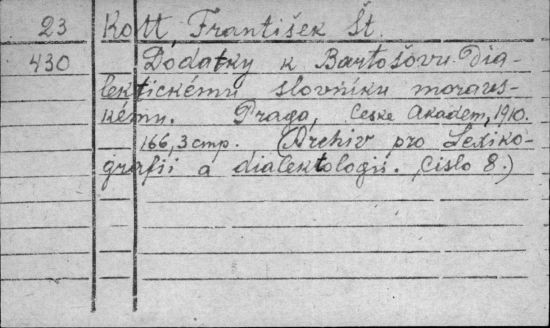 23 Kott, František Št.
430 Dodatky k Bartošovu Dia-
lektickému slovníku moravs-
kému. Praga, Česke Akadem, 1910.
166, 3 стр. (Archiv pro Lexiko-
grafii a dialektologii. Čislo 8.)